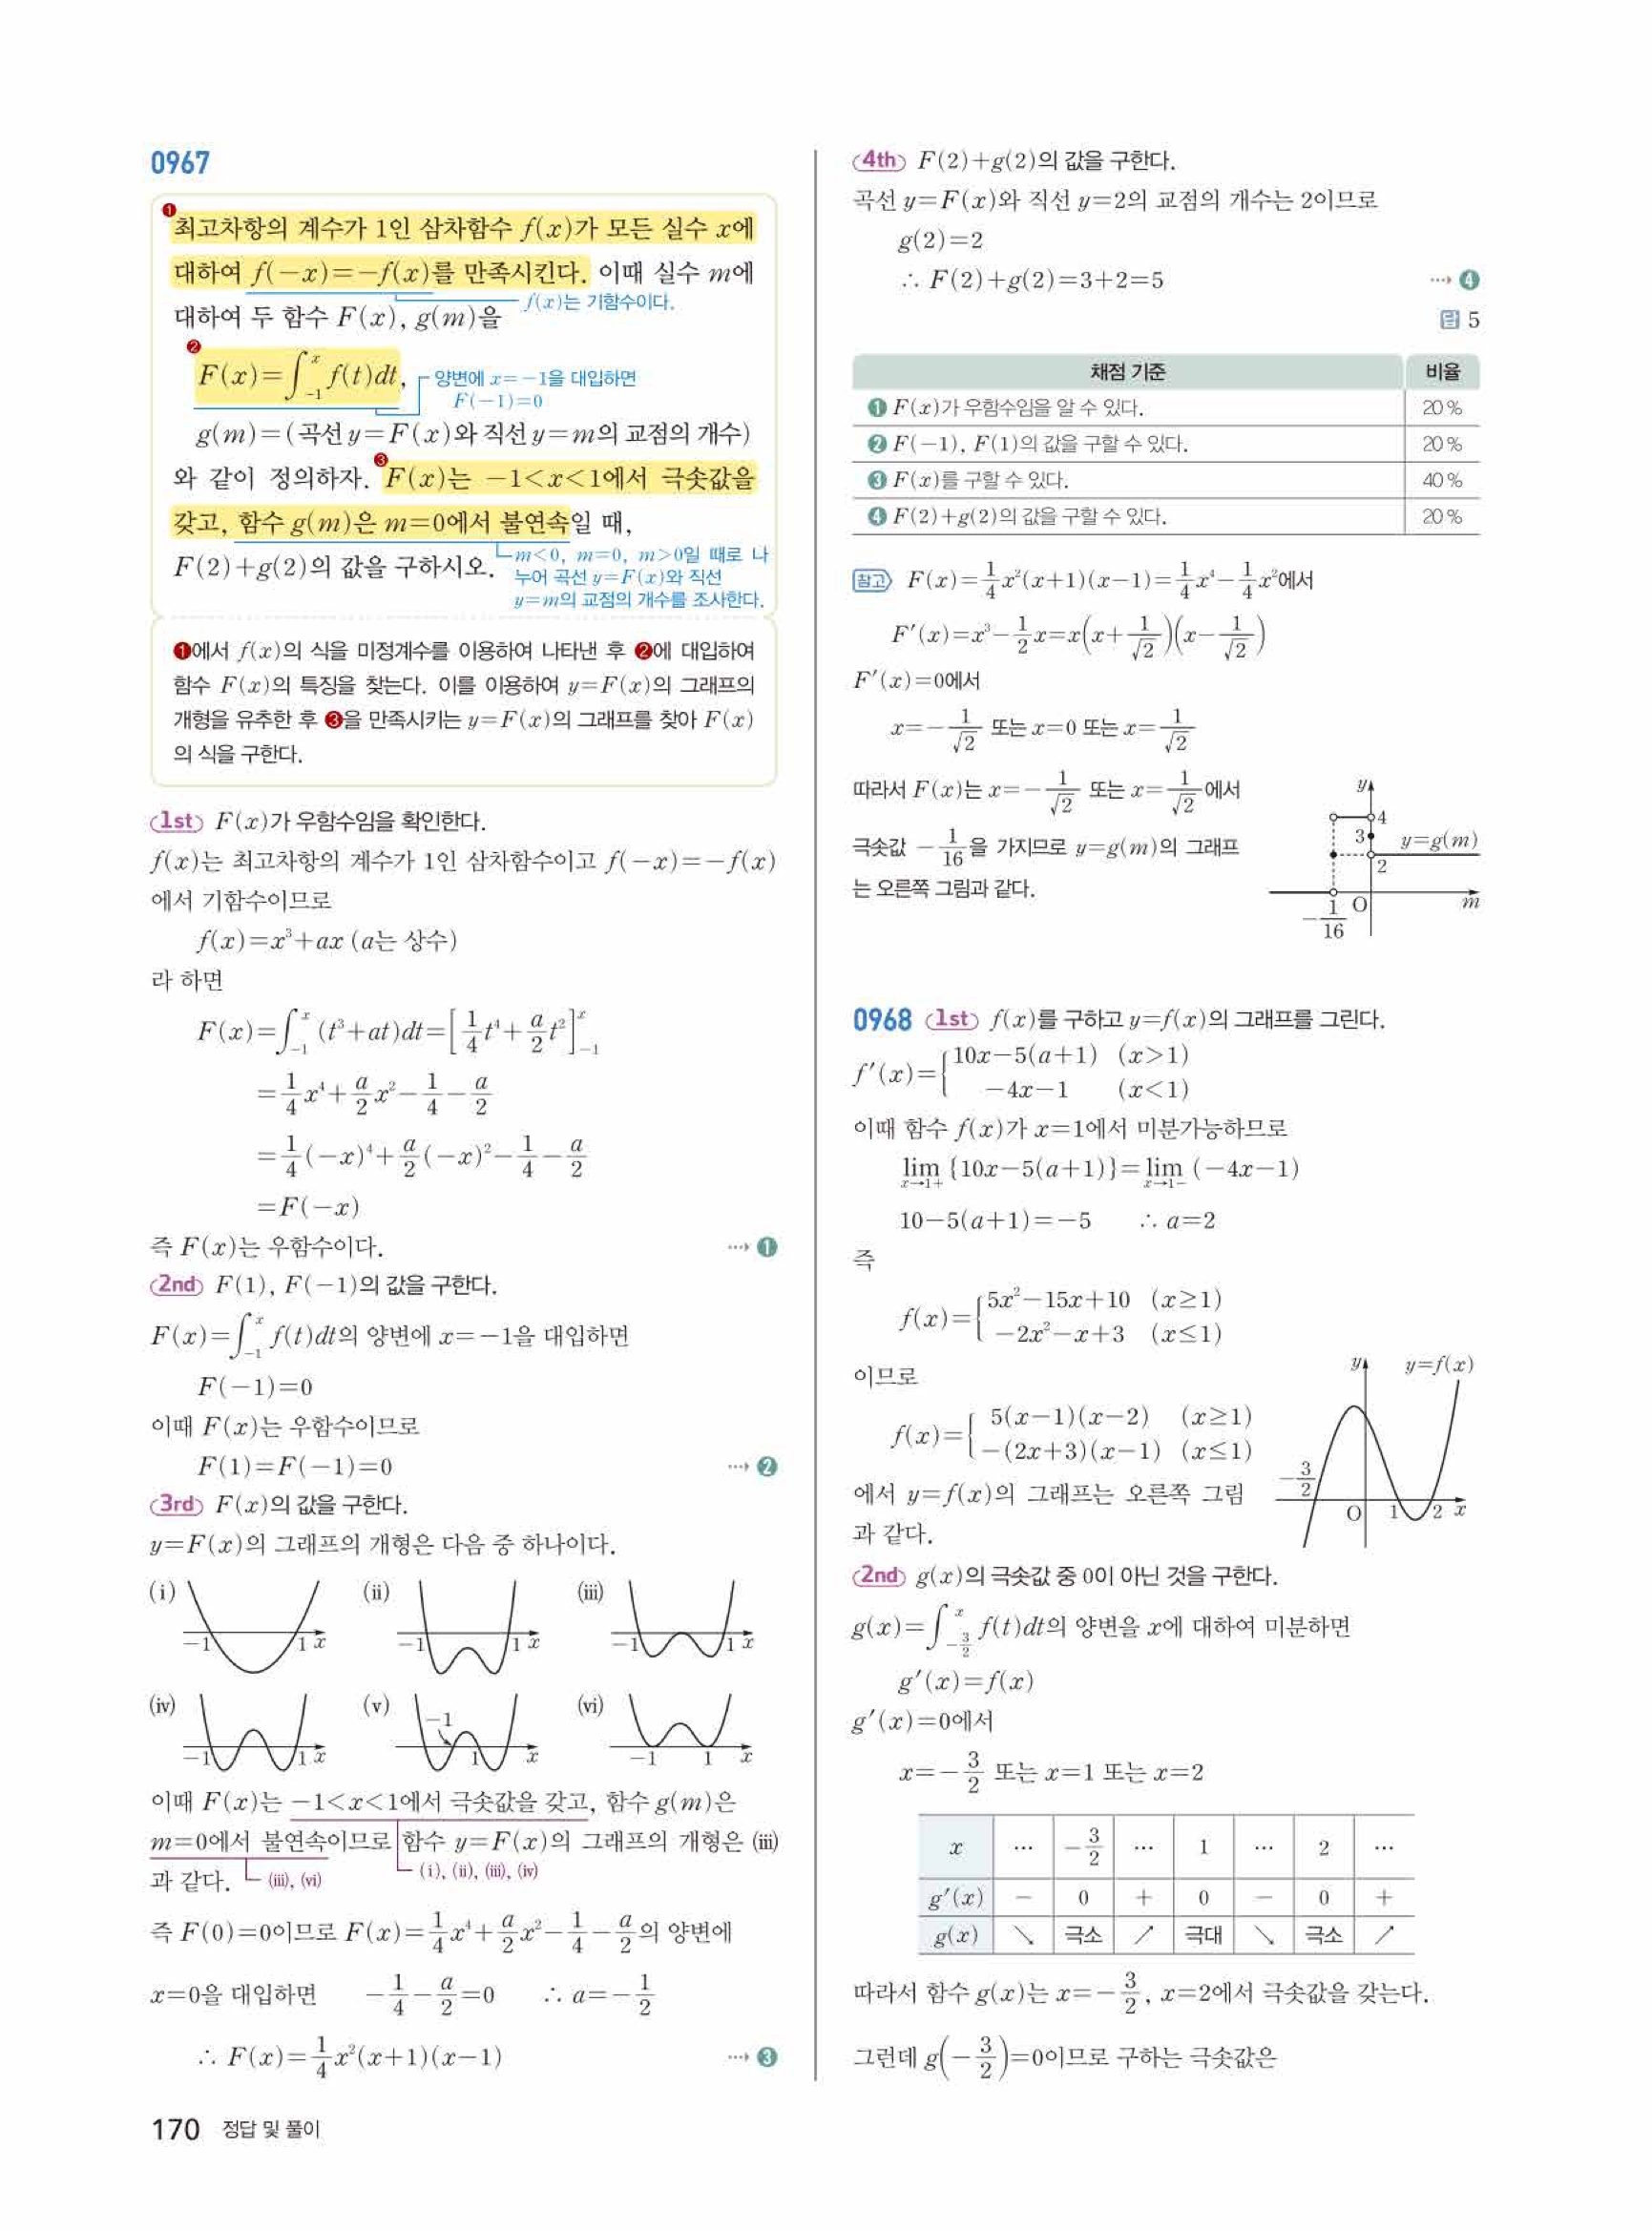 0967
❶
최고차항의 계수가 1인 삼차함수 f(x)가 모든 실수 x에
대하여 f(-x)=-f(x)를 만족시킨다. 이때 실수 m에
f(x)는 기함수이다.
대하여 두 함수 F(x), g(m)을
❷
F(x)=∫_{-1}^{x} f(t)dt,
양변에 x=-1을 대입하면
F(-1)=0
g(m)=(곡선 y=F(x)와 직선 y=m의 교점의 개수)
❸
와 같이 정의하자. F(x)는 -1<x<1에서 극솟값을
갖고, 함수 g(m)은 m=0에서 불연속일 때,
F(2)+g(2)의 값을 구하시오.
m<0, m=0, m>0일 때로 나
누어 곡선 y=F(x)와 직선
y=m의 교점의 개수를 조사한다.
❶에서 f(x)의 식을 미정계수를 이용하여 나타낸 후 ❷에 대입하여
함수 F(x)의 특징을 찾는다. 이를 이용하여 y=F(x)의 그래프의
개형을 유추한 후 ❸을 만족시키는 y=F(x)의 그래프를 찾아 F(x)
의 식을 구한다.
1st F(x)가 우함수임을 확인한다.
f(x)는 최고차항의 계수가 1인 삼차함수이고 f(-x)=-f(x)
에서 기함수이므로
f(x)=x³+ax (a는 상수)
라 하면
F(x)=∫_{-1}^{x} (t³+at)dt=[1/4 t⁴+a/2 t²]_{-1}^{x}
=1/4 x⁴+a/2 x²-1/4-a/2
=1/4 (-x)⁴+a/2 (-x)²-1/4-a/2
=F(-x)
즉 F(x)는 우함수이다. ⋯→ ❶
2nd F(1), F(-1)의 값을 구한다.
F(x)=∫_{-1}^{x} f(t)dt의 양변에 x=-1을 대입하면
F(-1)=0
이때 F(x)는 우함수이므로
F(1)=F(-1)=0 ⋯→ ❷
3rd F(x)의 값을 구한다.
y=F(x)의 그래프의 개형은 다음 중 하나이다.
(i) -1 1 x (ii) -1 1 x (iii) -1 1 x
(iv) -1 1 x (v) -1 1 x (vi) -1 1 x
이때 F(x)는 -1<x<1에서 극솟값을 갖고, 함수 g(m)은
m=0에서 불연속이므로 함수 y=F(x)의 그래프의 개형은 (iii)
(i), (ii), (iii), (iv)
과 같다. (iii), (vi)
즉 F(0)=0이므로 F(x)=1/4 x⁴+a/2 x²-1/4-a/2의 양변에
x=0을 대입하면 -1/4-a/2=0 ∴ a=-1/2
∴ F(x)=1/4 x²(x+1)(x-1) ⋯→ ❸
170 정답 및 풀이
4th F(2)+g(2)의 값을 구한다.
곡선 y=F(x)와 직선 y=2의 교점의 개수는 2이므로
g(2)=2
∴ F(2)+g(2)=3+2=5 ⋯→ ❹
답 5
채점 기준 비율
❶ F(x)가 우함수임을 알 수 있다. 20 %
❷ F(-1), F(1)의 값을 구할 수 있다. 20 %
❸ F(x)를 구할 수 있다. 40 %
❹ F(2)+g(2)의 값을 구할 수 있다. 20 %
참고 F(x)=1/4 x²(x+1)(x-1)=1/4 x⁴-1/4 x²에서
F'(x)=x³-1/2 x=x(x+1/√2)(x-1/√2)
F'(x)=0에서
x=-1/√2 또는 x=0 또는 x=1/√2
따라서 F(x)는 x=-1/√2 또는 x=1/√2에서
극솟값 -1/16을 가지므로 y=g(m)의 그래프
는 오른쪽 그림과 같다.
y
4
3
y=g(m)
2
-1/16 O m
0968 1st f(x)를 구하고 y=f(x)의 그래프를 그린다.
f'(x)={10x-5(a+1) (x>1)
-4x-1 (x<1)
이때 함수 f(x)가 x=1에서 미분가능하므로
lim_{x→1+} {10x-5(a+1)}=lim_{x→1-} (-4x-1)
10-5(a+1)=-5 ∴ a=2
즉
f(x)={5x²-15x+10 (x≥1)
-2x²-x+3 (x≤1)
이므로
f(x)={5(x-1)(x-2) (x≥1)
-(2x+3)(x-1) (x≤1)
에서 y=f(x)의 그래프는 오른쪽 그림
과 같다.
y y=f(x)
-3/2 O 1 2 x
2nd g(x)의 극솟값 중 0이 아닌 것을 구한다.
g(x)=∫_{-3/2}^{x} f(t)dt의 양변을 x에 대하여 미분하면
g'(x)=f(x)
g'(x)=0에서
x=-3/2 또는 x=1 또는 x=2
x ⋯ -3/2 ⋯ 1 ⋯ 2 ⋯
g'(x) - 0 + 0 - 0 +
g(x) ↘ 극소 ↗ 극대 ↘ 극소 ↗
따라서 함수 g(x)는 x=-3/2, x=2에서 극솟값을 갖는다.
그런데 g(-3/2)=0이므로 구하는 극솟값은